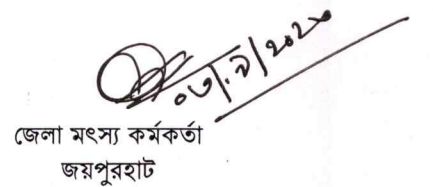 ০৩/৯/২০২০
জেলা মৎস্য কর্মকর্তা
জয়পুরহাট